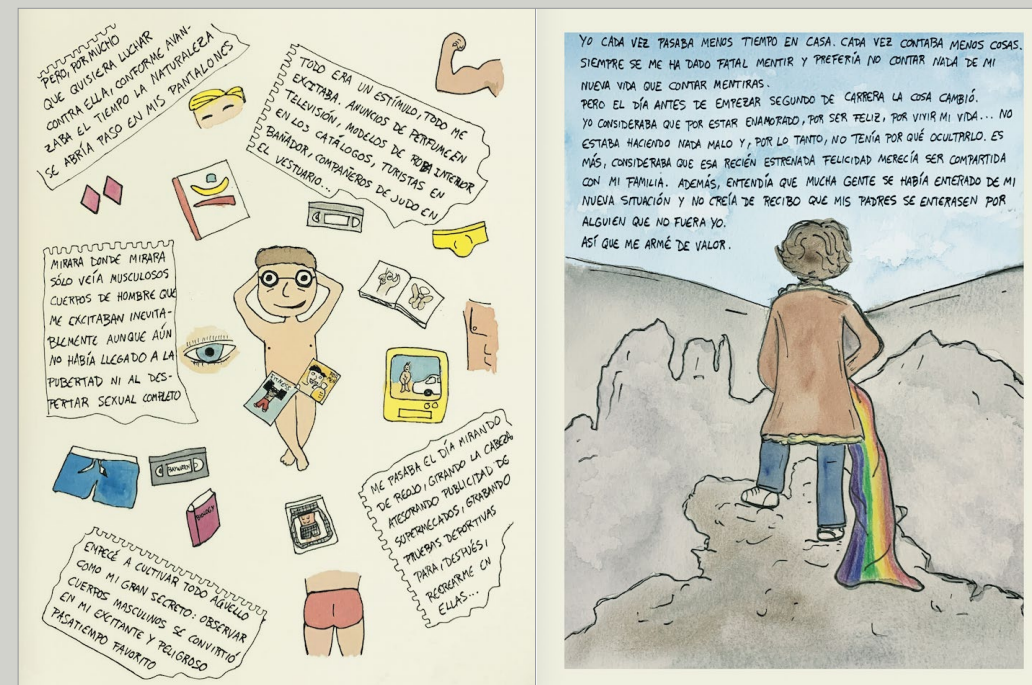 PERO, POR MUCHO
QUE QUISIERA LUCHAR
CONTRA ELLA, CONFORME AVAN-
ZABA EL TIEMPO LA NATURALEZA
SE ABRÍA PASO EN MIS PANTALONES
TODO ERA UN ESTÍMULO, TODO ME
EXCITABA. ANUNCIOS DE PERFUME EN
TELEVISIÓN, MODELOS DE ROPA INTERIOR
EN LOS CATÁLOGOS, TURISTAS EN
BAÑADOR, COMPAÑEROS DE JUDO EN
EL VESTUARIO...
MIRARA DONDE MIRARA
SÓLO VEÍA MUSCULOSOS
CUERPOS DE HOMBRE QUE
ME EXCITABAN INEVITA-
BLEMENTE AUNQUE AÚN
NO HABÍA LLEGADO A LA
PUBERTAD NI AL DES-
PERTAR SEXUAL COMPLETO
ME PASABA EL DÍA MIRANDO
DE REOJO, GIRANDO LA CABEZA
ATESORANDO PUBLICIDAD DE
SUPERMECADOS, GRABANDO
PRUEBAS DEPORTIVAS
PARA, DESPUÉS,
RECREARME EN
ELLAS...
EMPECÉ A CULTIVAR TODO AQUELLO
COMO MI GRAN SECRETO: OBSERVAR
CUERPOS MASCULINOS SE CONVIRTIÓ
EN MI EXCITANTE Y PELIGROSO
PASATIEMPO FAVORITO
YO CADA VEZ PASABA MENOS TIEMPO EN CASA. CADA VEZ CONTABA MENOS COSAS.
SIEMPRE SE ME HA DADO FATAL MENTIR Y PREFERÍA NO CONTAR NADA DE MI
NUEVA VIDA QUE CONTAR MENTIRAS.
PERO EL DÍA ANTES DE EMPEZAR SEGUNDO DE CARRERA LA COSA CAMBIÓ.
YO CONSIDERABA QUE POR ESTAR ENAMORADO, POR SER FELIZ, POR VIVIR MI VIDA... NO
ESTABA HACIENDO NADA MALO Y, POR LO TANTO, NO TENÍA POR QUÉ OCULTARLO. ES
MÁS, CONSIDERABA QUE ESA RECIÉN ESTRENADA FELICIDAD MERECÍA SER COMPARTIDA
CON MI FAMILIA. ADEMÁS, ENTENDÍA QUE MUCHA GENTE SE HABÍA ENTERADO DE MI
NUEVA SITUACIÓN Y NO CREÍA DE RECIBO QUE MIS PADRES SE ENTERASEN POR
ALGUIEN QUE NO FUERA YO.
ASÍ QUE ME ARMÉ DE VALOR.